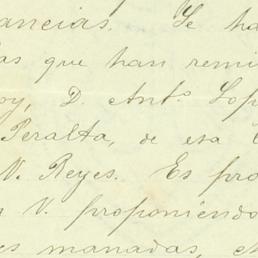 ancias. Se ha
as que han remi
oy, D. Ant.º Lop
Peralta, de esa
V. Reyes. Es pro
V. proponiendo
es manadas, e